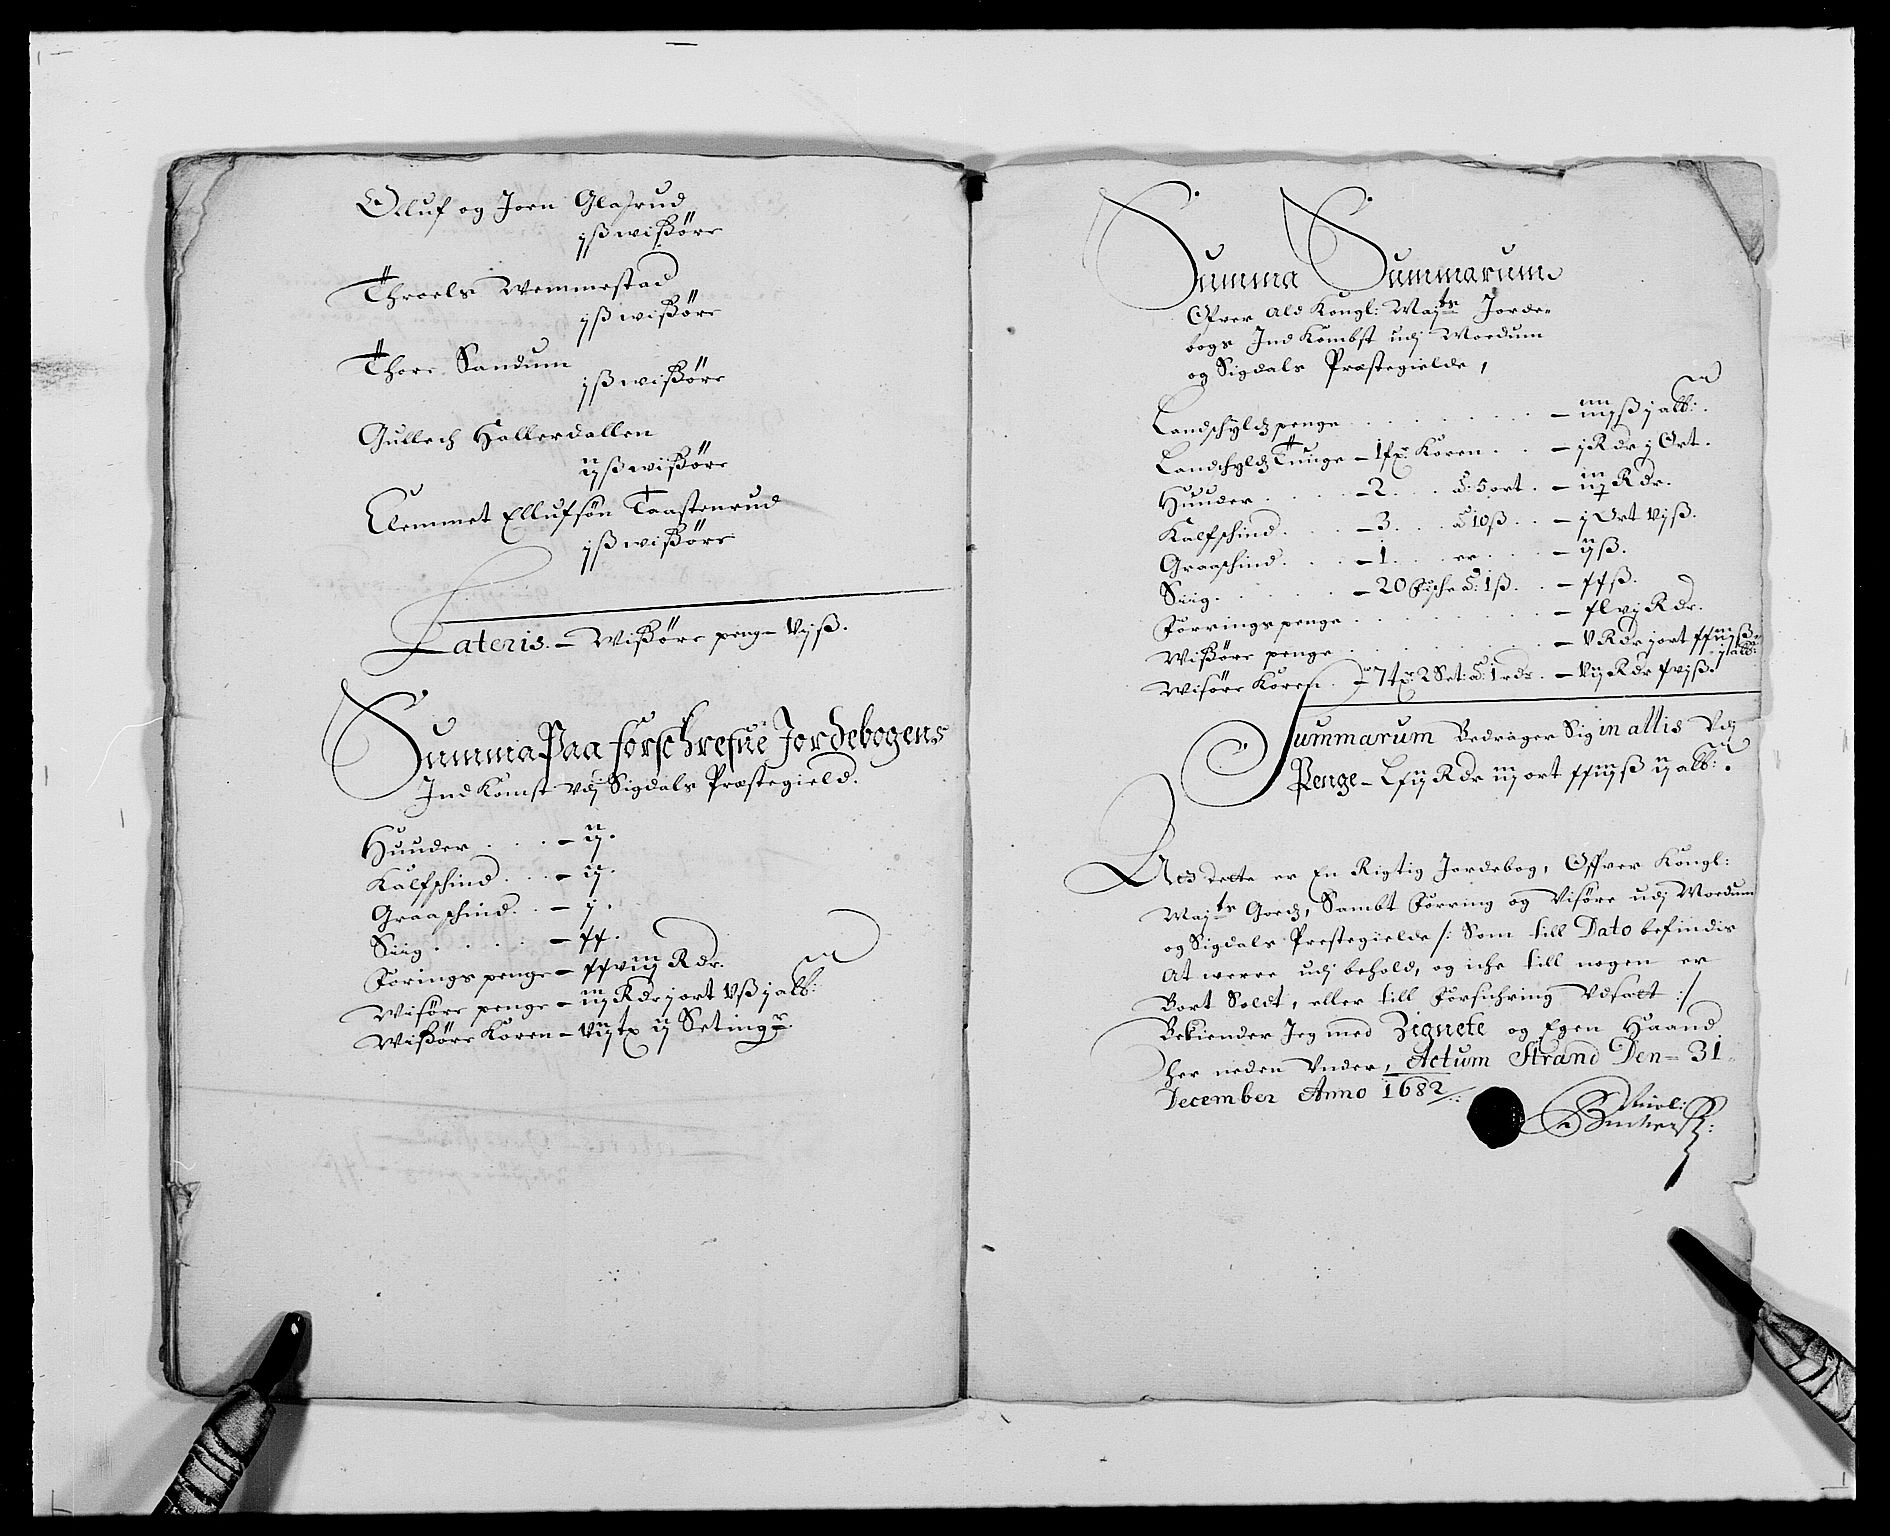 Olluf og Joen Glasrud
jß wißøre
Throels Wemmestad
jß wißøre
Thore Sandum
jß wißøre
Gullech Hallerdallen
ijß wißøre
Clemmet Ellufsøn Taastenrud
jß wißøre
Lateris. – Wißøre penge Vjß.
Summa Paa forschrefne Jordebogens
Ind Komst vdj Sigdals Præstegield.
Huuder . . . – ij.
Kalfschind . . – ij.
Graaschind . . – j.
Siig . . . . – xx.
Foringspenge – xxviij Rdr.
Wisøre penge – iij Rdr j ort Vß j alb:
Wißøre Koren – Viij tx ij Setinger.
Summa Summarum
Ofver Ald Kongl: Majts Jorde-
bogs Ind Kombst udj Moedum
og Sigdals Præstegielde,
Landschyldz penge . . . . . – iiijß j alb:.
Landschyldz Tunge – 1 fx: Koren . . – j Rdr j Ort.
Huuder . . . . – 2 . . . à: 5 ort . – ij Rdr.
Kalfschind . . . – 3 . . à 10ß . . – j Ort vjß.
Graaschind . . . – 1 . . er . . . – ijß.
Siig . . . . . – 20 Fische à: 1ß . . – xxß.
Forringspenge . . . . . . – xlvj Rdr.
Wißøre penge . . . . . . – V Rdr j ort xxiijß
j alb:
Wisøre Koren . – 7 tx: 2 Set: à: 1 rdr . – Vij Rdr xvjß.
Summarum Bedrager Sig in allis Vdj
Penge – Lxij Rdr iij ort xxiijß ij alb:.
At dette er En Rigtig Jordebog, Offver Kongl:
Majts Goedz, Sambt Forring og Visøre udj Moedum
og Sigdals Prestegielde /: Som till Dato befindis
At werre udj behold, og iche till nogen er
Bort Soldt, eller till Forsichring Vdsatt :/
Bekiender Jeg med Zignete og Egen Haand
her neden Vnder, Actum Strand Den 31
December Anno 1682